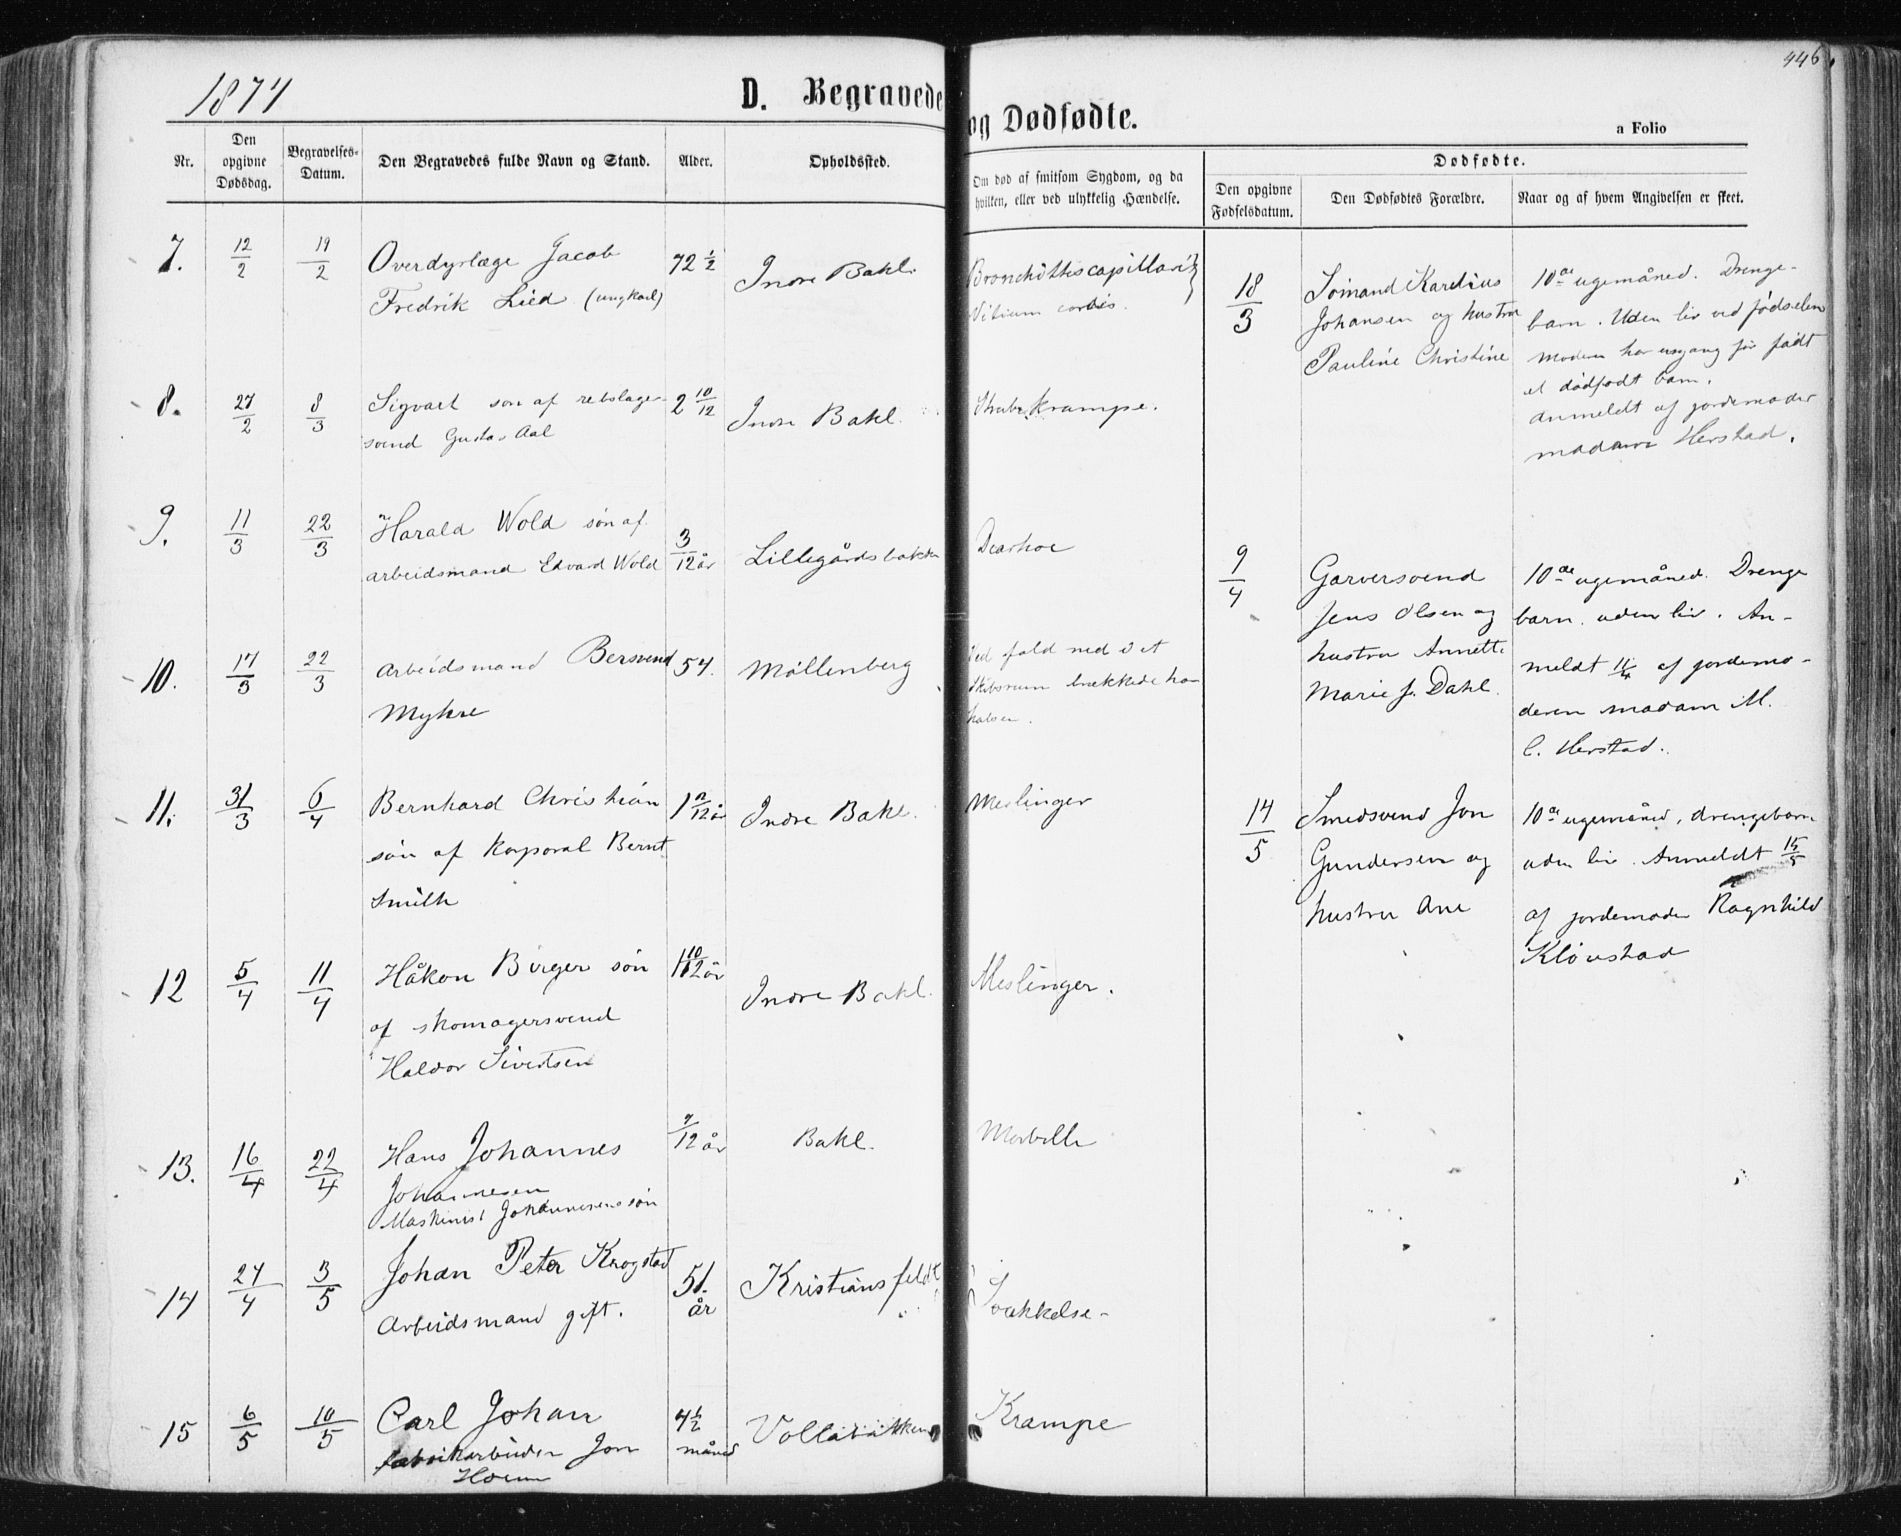 446
1874
D. Begravede og Dødfødte.
a Folio
Nr.
Den opgivne Dødsdag.
Begravelses-Datum.
Den Begravedes fulde Navn og Stand.
Alder.
Opholdssted.
Om død af smitsom Sygdom, og da
hvilken, eller ved ulykkelig Hændelse.
Dødfødte.
Den opgivne Fødselsdatum.
Den Dødfødtes Forældre.
Naar og af hvem Angivelsen er skeet.
7. 12/2 19/2 Overdyrlæge Jacob 72 1/2 Indre Bakl. Bronchittis capillaris
Fredrik Lied (ungkarl) Vitium cordis.
8. 27/2 8/3 Sigvart son af rebslager- 2 10/12 Indre Bakl. Strubekrampe.
svend Gustav Aal
9. 11/3 22/3 Harald Wold søn af 3/12 år Lillegårdsbakke Diarhoe
arbeidsmand Edvard Wold
10. 17/3 22/3 Arbeidsmand Bersvend 54. Møllenberg Ved fald ned i et
Mykre Skibsrum brækkede han
halsen.
11. 31/3 6/4 Bernhard Christian 1 /12 år Indre Bakl. Meslinger
søn af korporal Bernt
Smith
12 5/4 11/4 Håkon Birger søn 1 10/12 år Indre Bakl. Meslinger.
af skomagersvend
Haldor Sivertsen
13. 16/4 22/4 Hans Johannes /12 år Bakl. Morbilli
Johannesen
Maskinist Johannesens søn
14 27/4 3/5 Johan Peter Krogstad 51. år Kristiansfeldt Svækkelse-
Arbeidsmand gift.
15 6/5 10/5 Carl Johan 4 1/2 måned Vollabakken Krampe
fabrikarbeider Jon
Hoem
18/3 Sømand Karelius
Johansen og hustru
Pauline Christine
10de ugemåned. Drenge-
barn. Uden liv ved fødselen
Moderen har engang før født
et dødfødt barn.
Anmeldt af jordemoder
madame Herstad.
9/4 Garversvend
Jens Olsen og
hustru Annette
Marie J. Dahl.
10de ugemåned. Drenge
barn. uden liv. An-
meldt 11/4 af jordemo-
deren madam M.
C. Herstad.
14/5 Smedsvend Jon
Gundersen og
hustru Ane
10de ugemåned, drengebarn
uden liv. Anmeldt 15/5
af jordemoder Ragnhild
Kløvstad